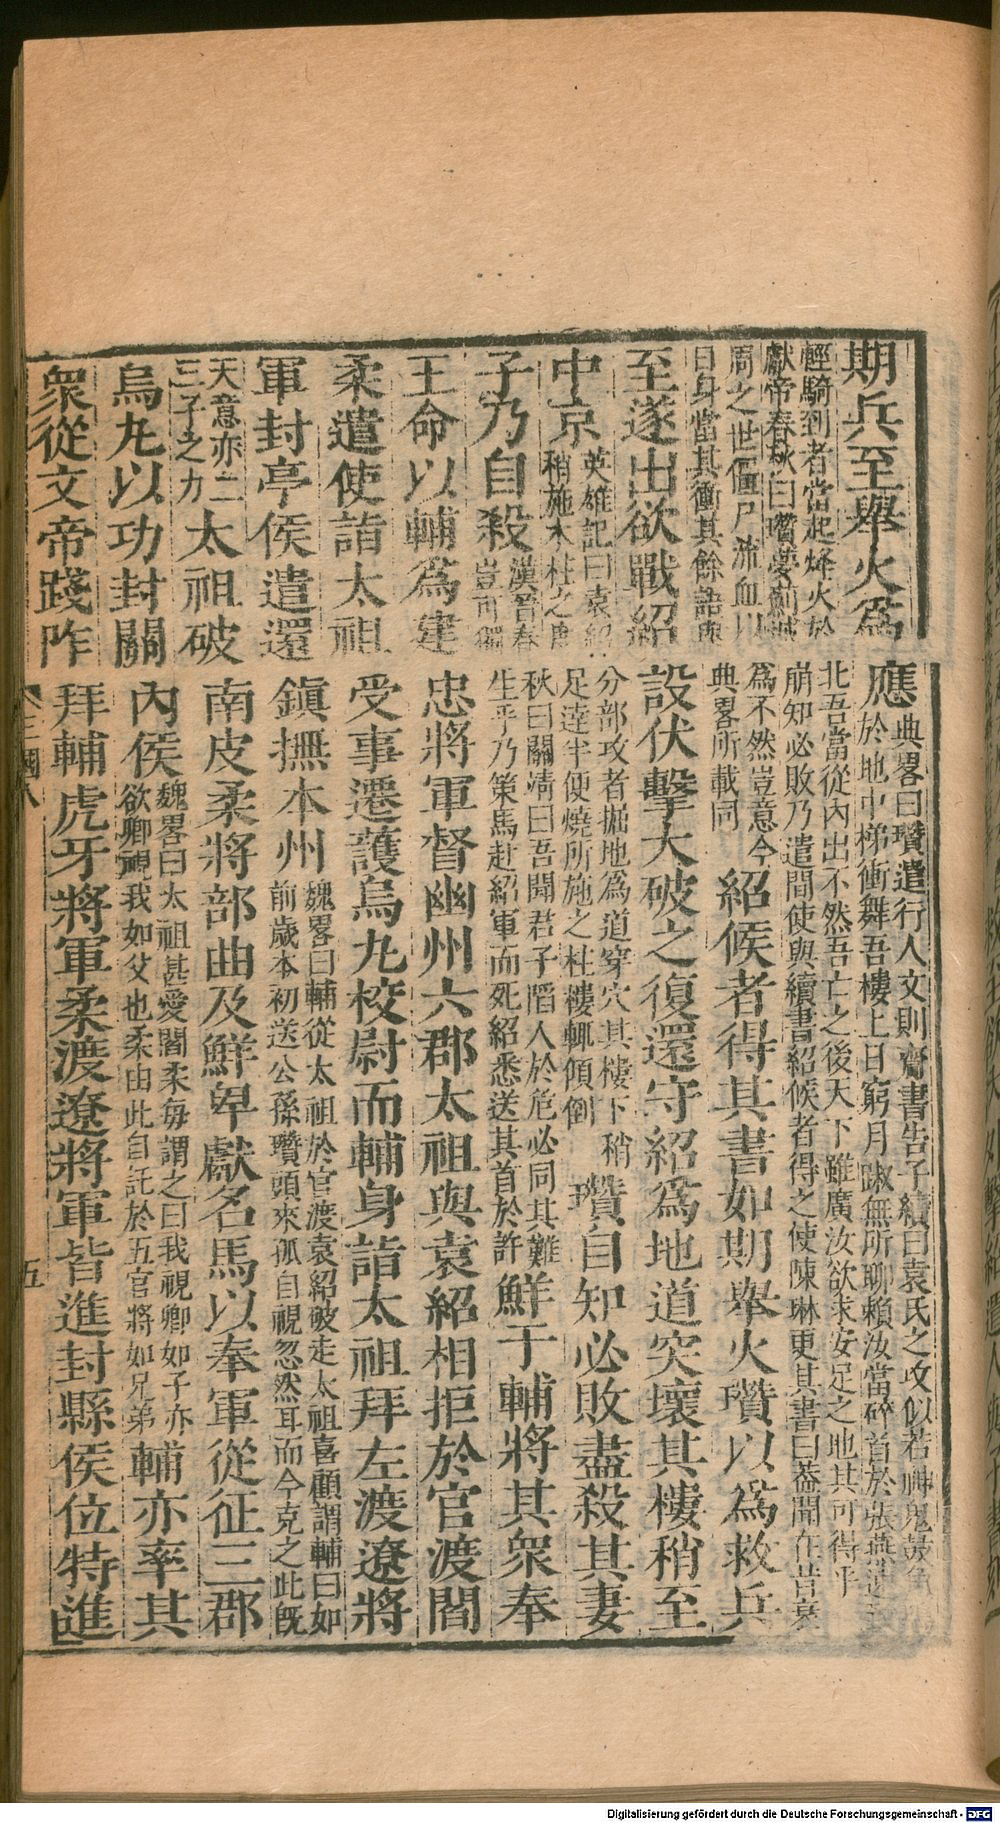 期兵至舉火為應典畧曰瓚遣行人文則齎書告子續曰袁氏之攻似若神鬼鼓角
於地中梯衝舞吾樓上日窮月踧無所聊賴汝當碎首於張燕速
輕騎到者當起烽火於北吾當從內出不然吾亡之後天下雖廣汝欲求安足之地其可得乎
獻帝春秋曰瓚夢薊城崩知必敗乃遣間使與續書紹候者得之使陳琳更其書曰葢聞在昔衰
周之世僵尸流血以為不然豈意今
日身當其衝其餘語與典畧所載同紹候者得其書如期舉火瓚以為救兵
至遂出欲戰紹設伏擊大破之復還守紹為地道突壞其樓稍至
中京英雄記曰袁紹分部攻者掘地為道穿穴其樓下稍
稍施木柱之度足達半便燒所施之柱樓輒傾倒瓚自知必敗盡殺其妻
子乃自殺漢晉春秋曰關靖曰吾聞君子陷人於危必同其難
豈可獨生乎乃策馬赴紹軍而死紹悉送其首於許鮮于輔將其衆奉
王命以輔為建忠將軍督幽州六郡太祖與袁紹相拒於官渡閻
柔遣使詣太祖受事遷護烏丸校尉而輔身詣太祖拜左渡遼將
軍封亭侯遣還鎮撫本州魏畧曰輔從太祖於官渡袁紹破走太祖喜顧謂輔曰如
前歲本初送公孫瓚頭來孤自視忽然耳而今克之此既
天意亦二
三子之力太祖破南皮柔將部曲及鮮卑獻名馬以奉軍從征三郡
烏丸以功封關內侯魏畧曰太祖甚愛閻柔每謂之曰我視卿如子亦
欲卿視我如父也柔由此自託於五官將如兄弟輔亦率其
衆從文帝踐阼拜輔虎牙將軍柔渡遼將軍皆進封縣侯位特進
三國八 五
Digitalisierung gefördert durch die Deutsche Forschungsgemeinschaft - DFG